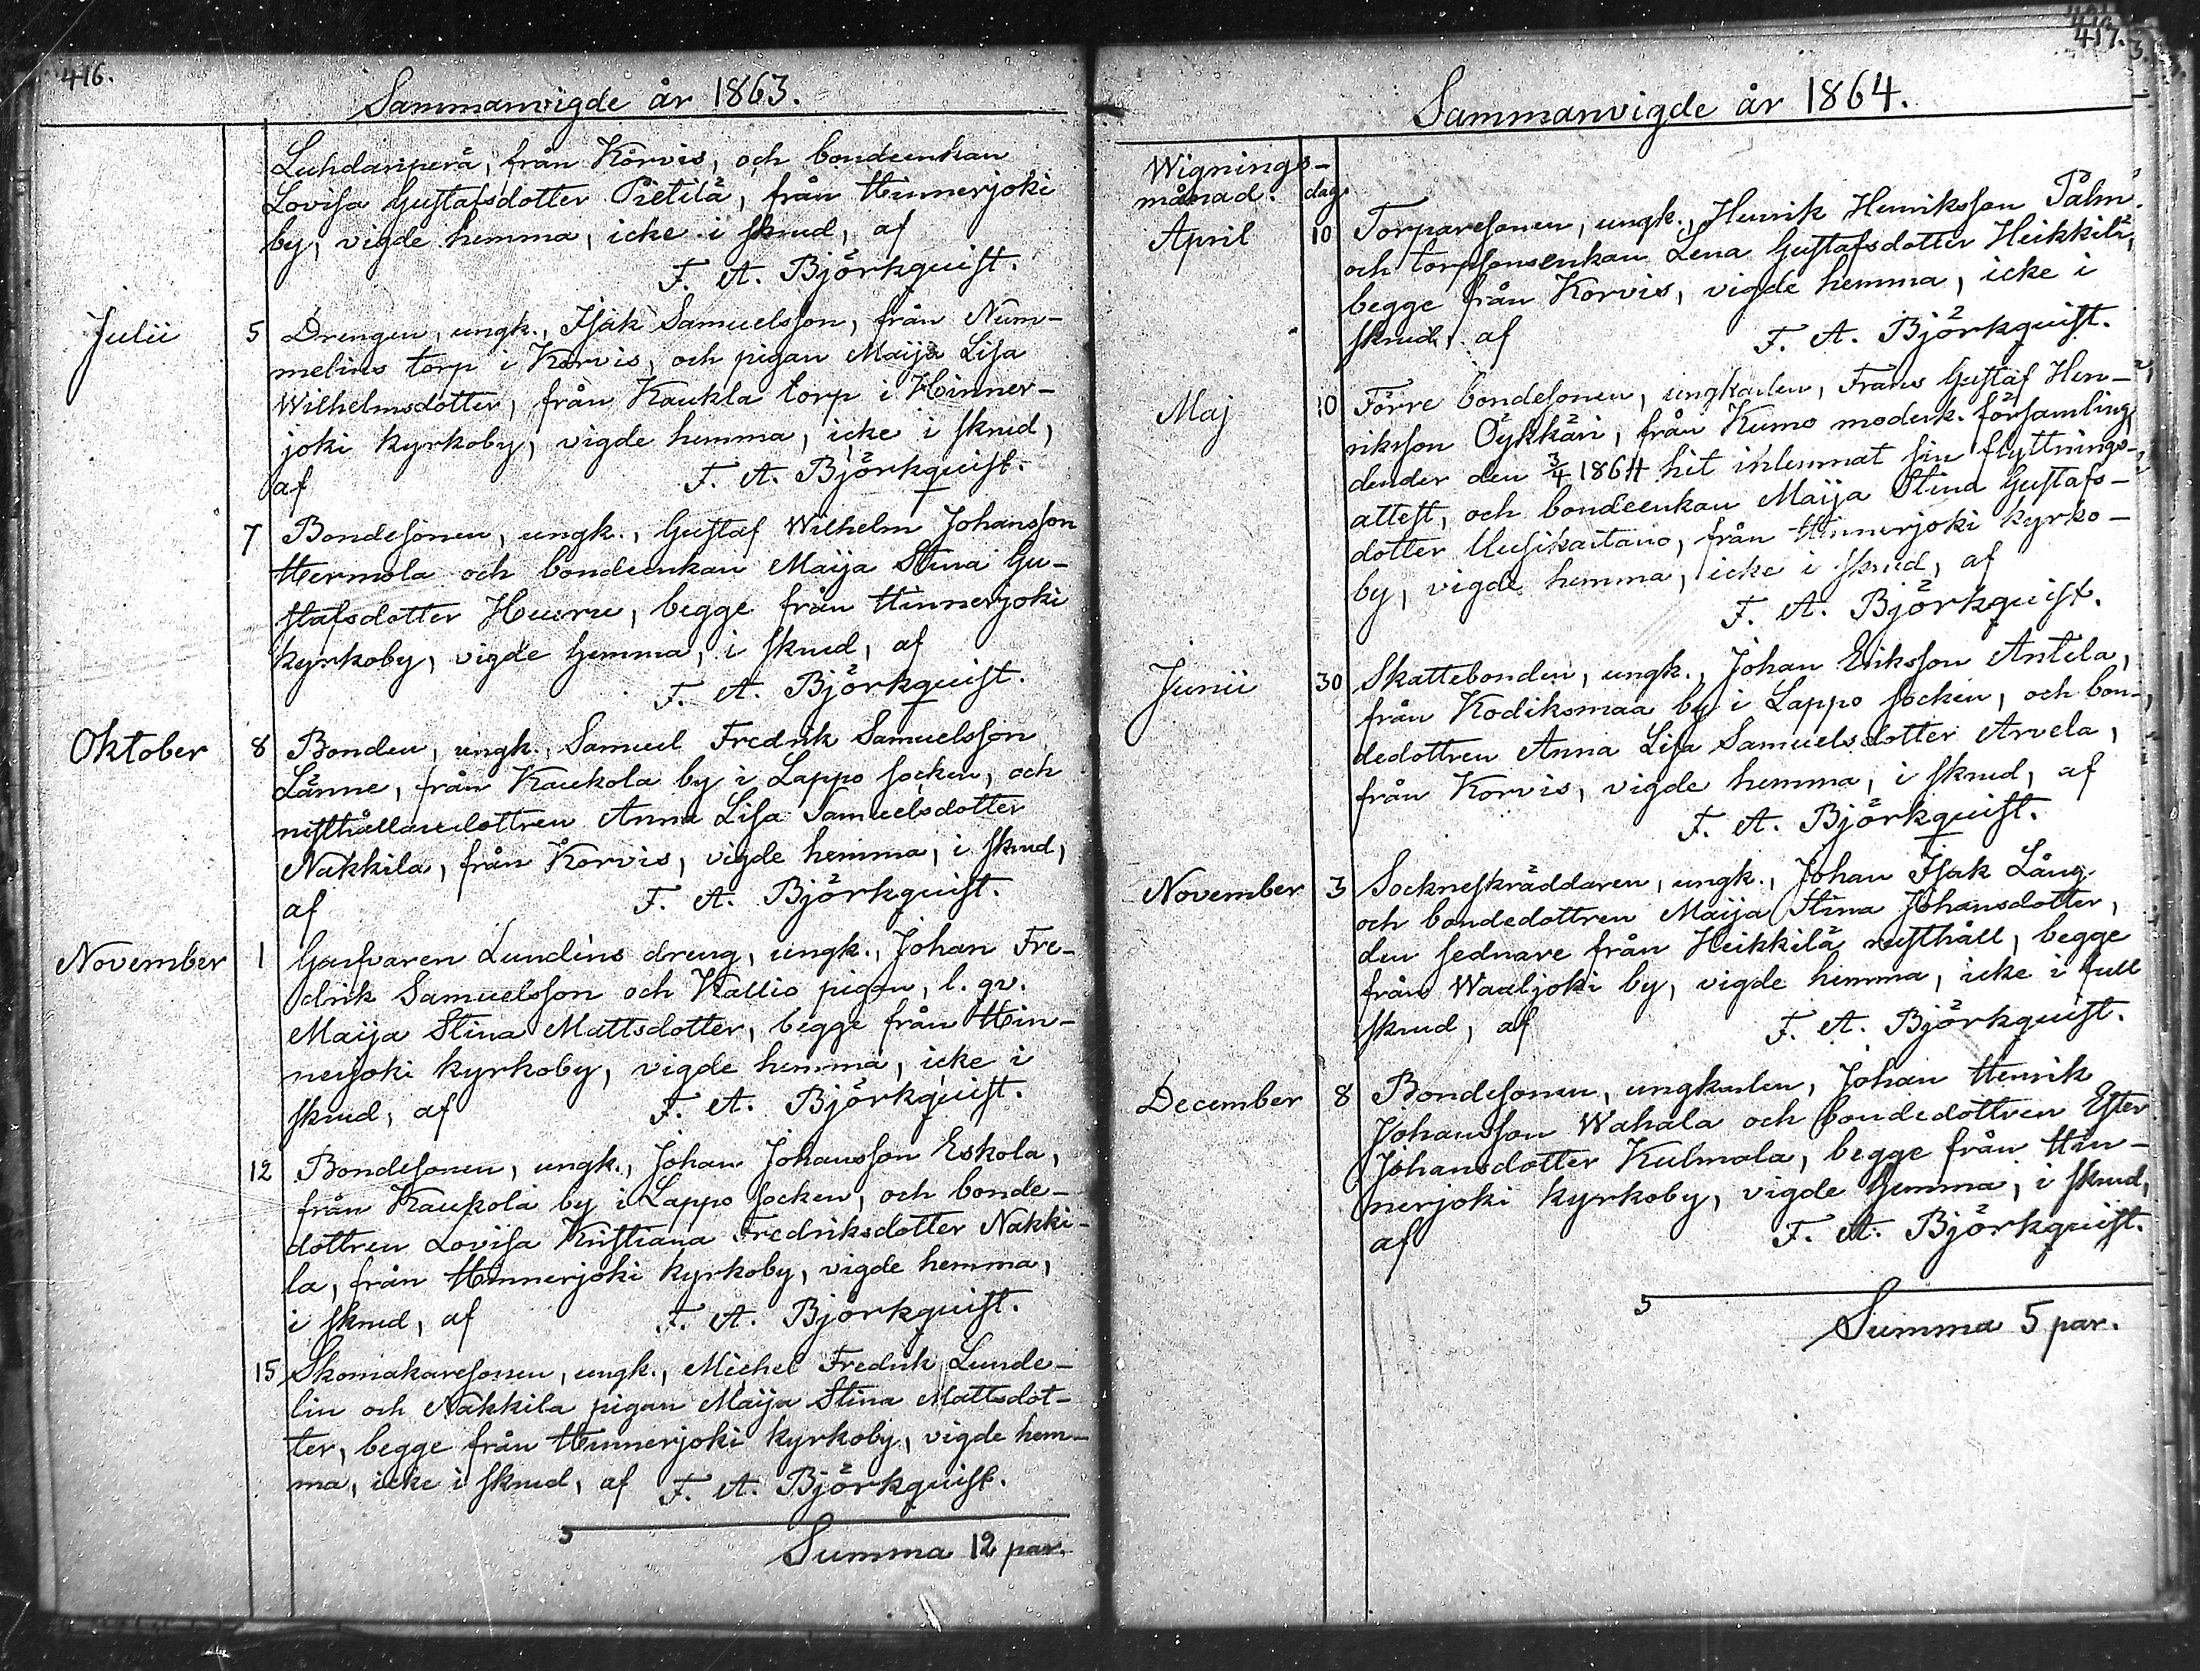 416.
Sammanvigde år 1863.
Luhdanperä, från Korvis, och bondeenkan
Lovisa Gustafsdotter Pietilä, från Hinnerjoki
by, vigde hemma, icke i skrud, af
F. A. Björkquist.
Julii 5 Drengen, ungk., Isak Samuelsson, från Num-
melins torp i Korvis, och pigan Maija Lisa
Wilhelmsdotter, från Kaukla torp i Hinner-
joki kyrkoby, vigde hemma, icke i skrud,
af F. A. Björkquist.
7 Bondesonen, ungk., Gustaf Wilhelm Johansson
Hermola och bondeenkan Maija Stina Gu-
stafsdotter Huuru, begge från Hinnerjoki
kyrkoby, vigde hemma, i skrud, af
F. A. Björkquist.
Oktober 8 Bonden, ungk., Samuel Fredrik Samuelsson
Länne, från Kaukola by i Lappo socken, och
rusthållaredottren Anna Lisa Samuelsdotter
Nakkila, från Korvis, vigde hemma, i skrud,
af F. A. Björkquist.
November 1 Garfvaren Lundéns dreng, ungk., Johan Fre-
drik Samuelsson och Kallio pigan, l. qv.
Maija Stina Mattsdotter, begge från Hin-
nerjoki kyrkoby, vigde hemma, icke i
skrud, af F. A. Björkquist.
12 Bondesonen, ungk., Johan Johansson Eskola,
från Kaukola by i Lappo socken, och bonde-
dottren Lovisa Kristiana Fredriksdotter Nakki-
la, från Hinnerjoki kyrkoby, vigde hemma,
i skrud, af F. A. Björkquist.
15 Skomakaresonen, ungk., Michel Fredrik Lunde-
lin och Nakkila pigan Maija Stina Mattsdot-
ter, begge från Hinnerjoki kyrkoby, vigde hem-
ma, icke i skrud, af F. A. Björkquist.
Summa 12 par.
417.
Sammanvigde år 1864.
Wignings-
månad. dag.
April 10 Torparesonen, ungk., Henrik Henriksson Palm
och torpsonsenkan Lena Gustafsdotter Heikkilä,
begge från Korvis, vigde hemma, icke i
skrud, af F. A. Björkquist.
Maj 10 Förre bondesonen, ungkarlen, Frans Gustaf Hen-
riksson Öykkäri, från Kumo moderk. församling,
dender den 3/4 1864 hit inlemnat sin flyttnings-
attest, och bondeenkan Maija Stina Gustafs-
dotter Uusikartano, från Hinnerjoki kyrko-
by, vigde hemma, icke i skrud, af
F. A. Björkquist.
Junii 30 Skattebonden, ungk., Johan Eriksson Antela,
från Kodiksmaa by i Lappo socken, och bon-
dedottren Anna Lisa Samuelsdotter Arvela,
från Korvis, vigde hemma, i skrud, af
F. A. Björkquist.
November 3 Sockneskräddaren, ungk., Johan Isak Lång
och bondedottren Maija Stina Johansdotter,
den sednare från Heikkilä rusthåll, begge
från Waaljoki by, vigde hemma, icke i full
skrud, af F. A. Björkquist.
December 8 Bondesonen, ungkarlen, Johan Henrik
Johansson Wahala och bondedottren Ester
Johansdotter Kulmala, begge från Hin-
nerjoki kyrkoby, vigde hemma, i skrud,
af F. A. Björkquist.
Summa 5 par.